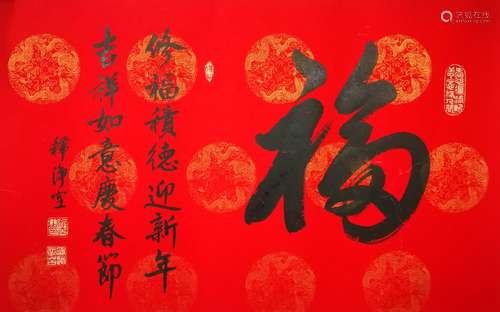 福
修福積德迎新年
吉祥如意慶春節
釋淨空